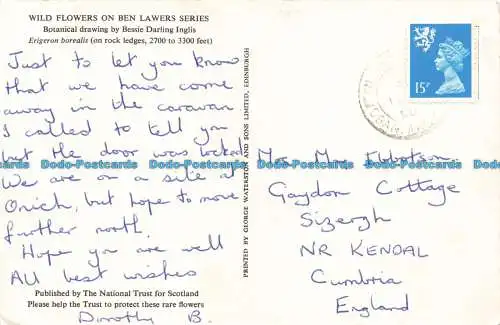 WILD FLOWERS ON BEN LAWERS SERIES
Botanical drawing by Bessie Darling Inglis
Erigeron borealis (on rock ledges, 2700 to 3300 feet)
Just to let you know
that we have come
away in the caravan
I called to tell you
but the door was locked
We are on a site at
Onich, but hope to move
further north.
Hope you are well
All best wishes
Published by The National Trust for Scotland
Please help the Trust to protect these rare flowers
Dorothy B.
PRINTED BY GEORGE WATERSTON AND SONS LIMITED, EDINBURGH
15P
Mrs Ibbotson
Gaydon Cottage
Sizergh
NR KENDAL
Cumbria
England
Dodo-Postcards Dodo-Postcards Dodo-Postcards Dodo-Postcards Dodo-Postcards